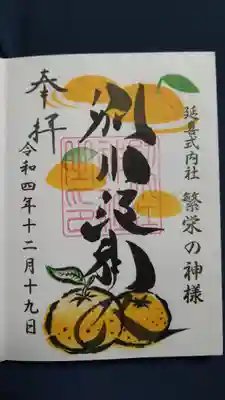 延喜式内社
繁栄の神様
別小江神社
奉拝
令和四年十二月十九日